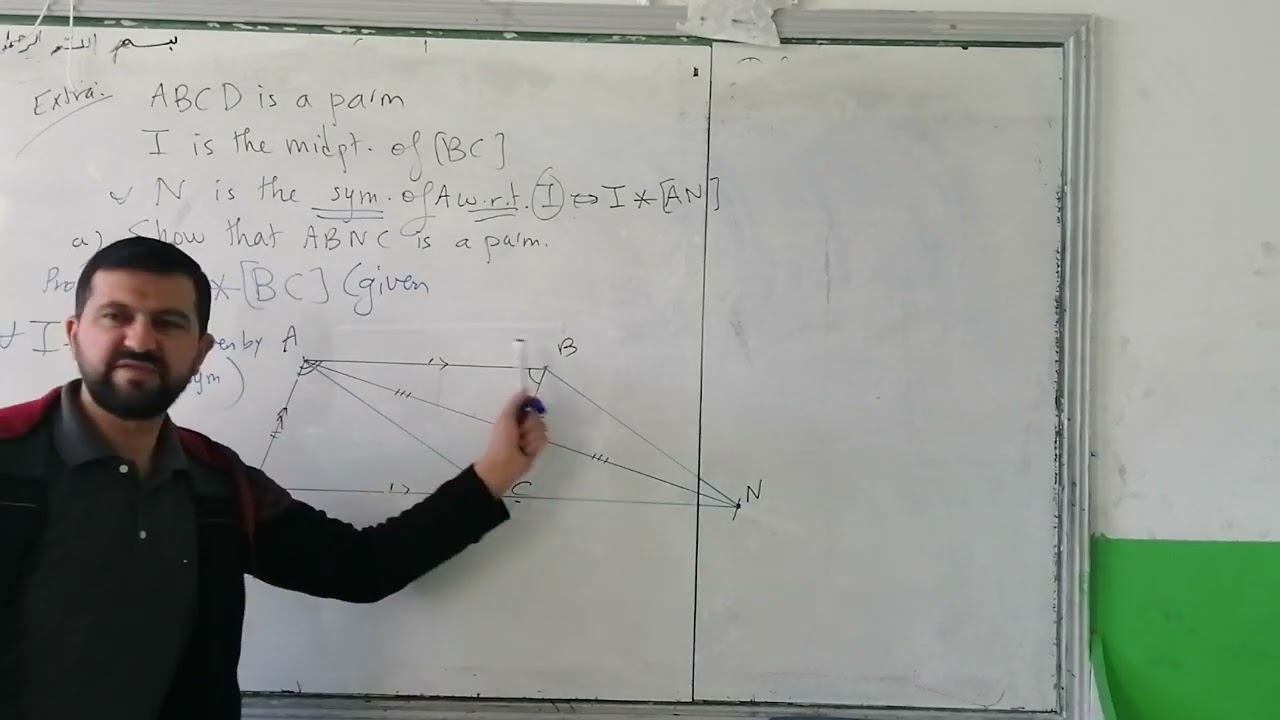 بسم الله الرحمن
Extra: ABCD is a pa'm
I is the midpt. of [BC]
N is the sym. of A w.r.t. I ⇔ I * [AN]
a) Show that ABNC is a pa'm.
* [BC] (given
I by
ym)
A B
C N